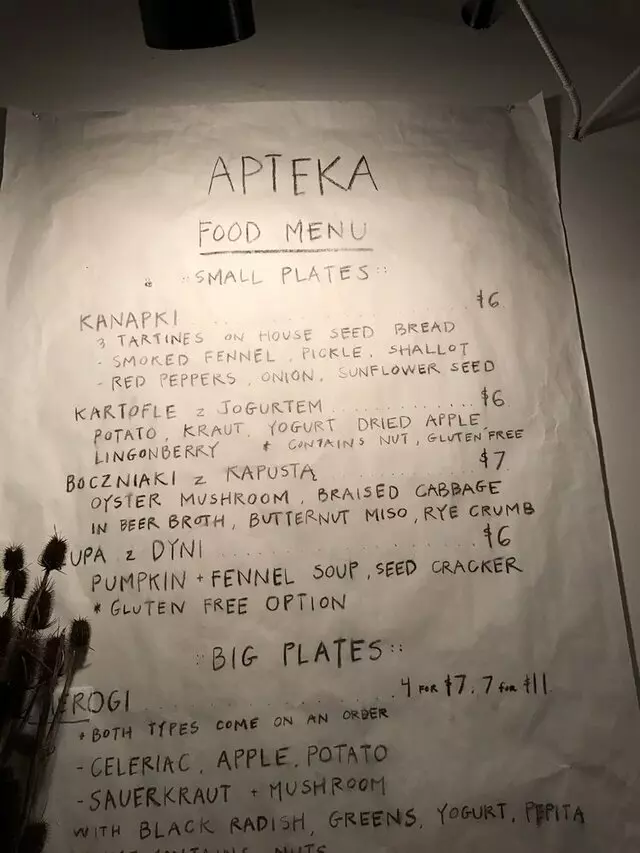 APTEKA
FOOD MENU
:: SMALL PLATES ::
KANAPKI . . . . . . . . . . . $6
3 TARTINES ON HOUSE SEED BREAD
- SMOKED FENNEL, PICKLE, SHALLOT
- RED PEPPERS, ONION, SUNFLOWER SEED
KARTOFLE z JOGURTEM . . . . . . . . . . . $6
POTATO, KRAUT, YOGURT DRIED APPLE,
LINGONBERRY * CONTAINS NUT, GLUTEN FREE
BOCZNIAKI z KAPUSTĄ . . . . . . . . . . . $7
OYSTER MUSHROOM, BRAISED CABBAGE
IN BEER BROTH, BUTTERNUT MISO, RYE CRUMB
UPA z DYNI . . . . . . . . . . . $6
PUMPKIN + FENNEL SOUP, SEED CRACKER
* GLUTEN FREE OPTION
:: BIG PLATES ::
EROGI . . . . . . . . . . . 4 FOR $7, 7 for $11
* BOTH TYPES COME ON AN ORDER
- CELERIAC, APPLE, POTATO
- SAUERKRAUT + MUSHROOM
WITH BLACK RADISH, GREENS, YOGURT, PEPITA
CONTAINS NUTS